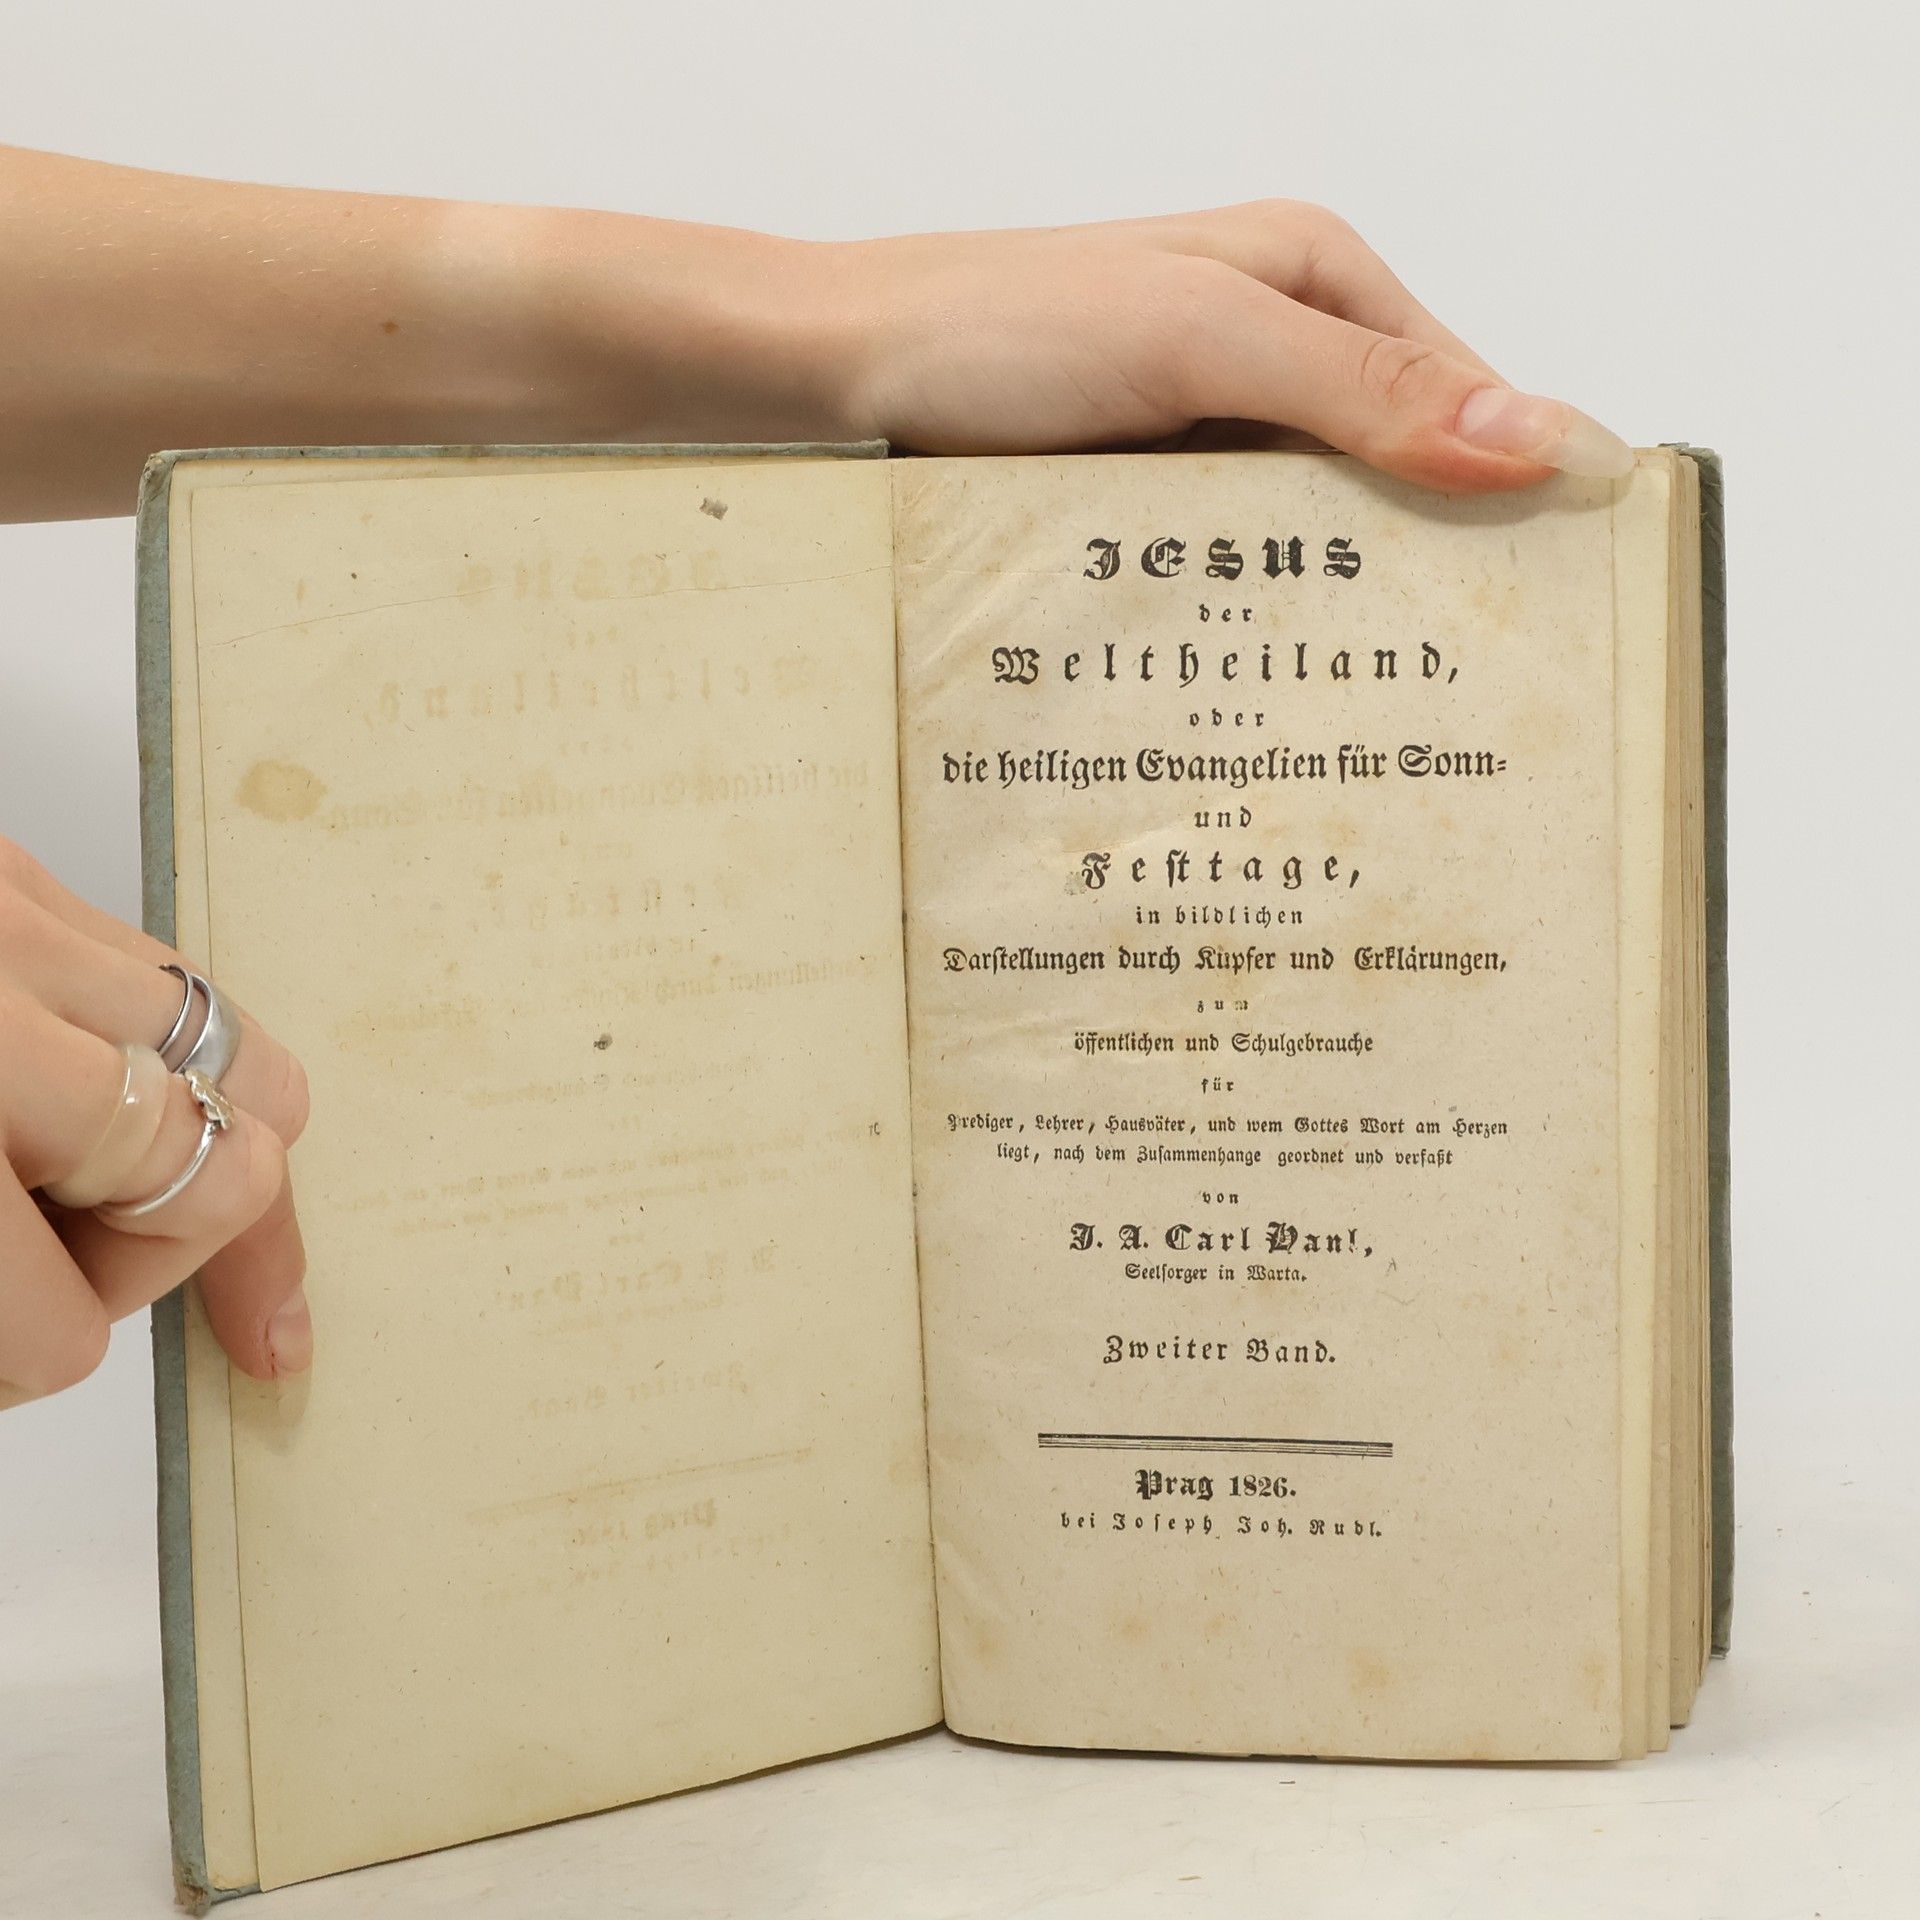 JESUS
der
Weltheiland,
oder
die heiligen Evangelien für Sonn-
und
Festtage,
in bildlichen
Darstellungen durch Kupfer und Erklärungen,
zum
öffentlichen und Schulgebrauche
für
Prediger, Lehrer, Hausväter, und wem Gottes Wort am Herzen
liegt, nach dem Zusammenhange geordnet und verfaßt
von
J. A. Carl Hanl,
Seelsorger in Warta.
Zweiter Band.
Prag 1826.
bei Joseph Joh. Rudl.